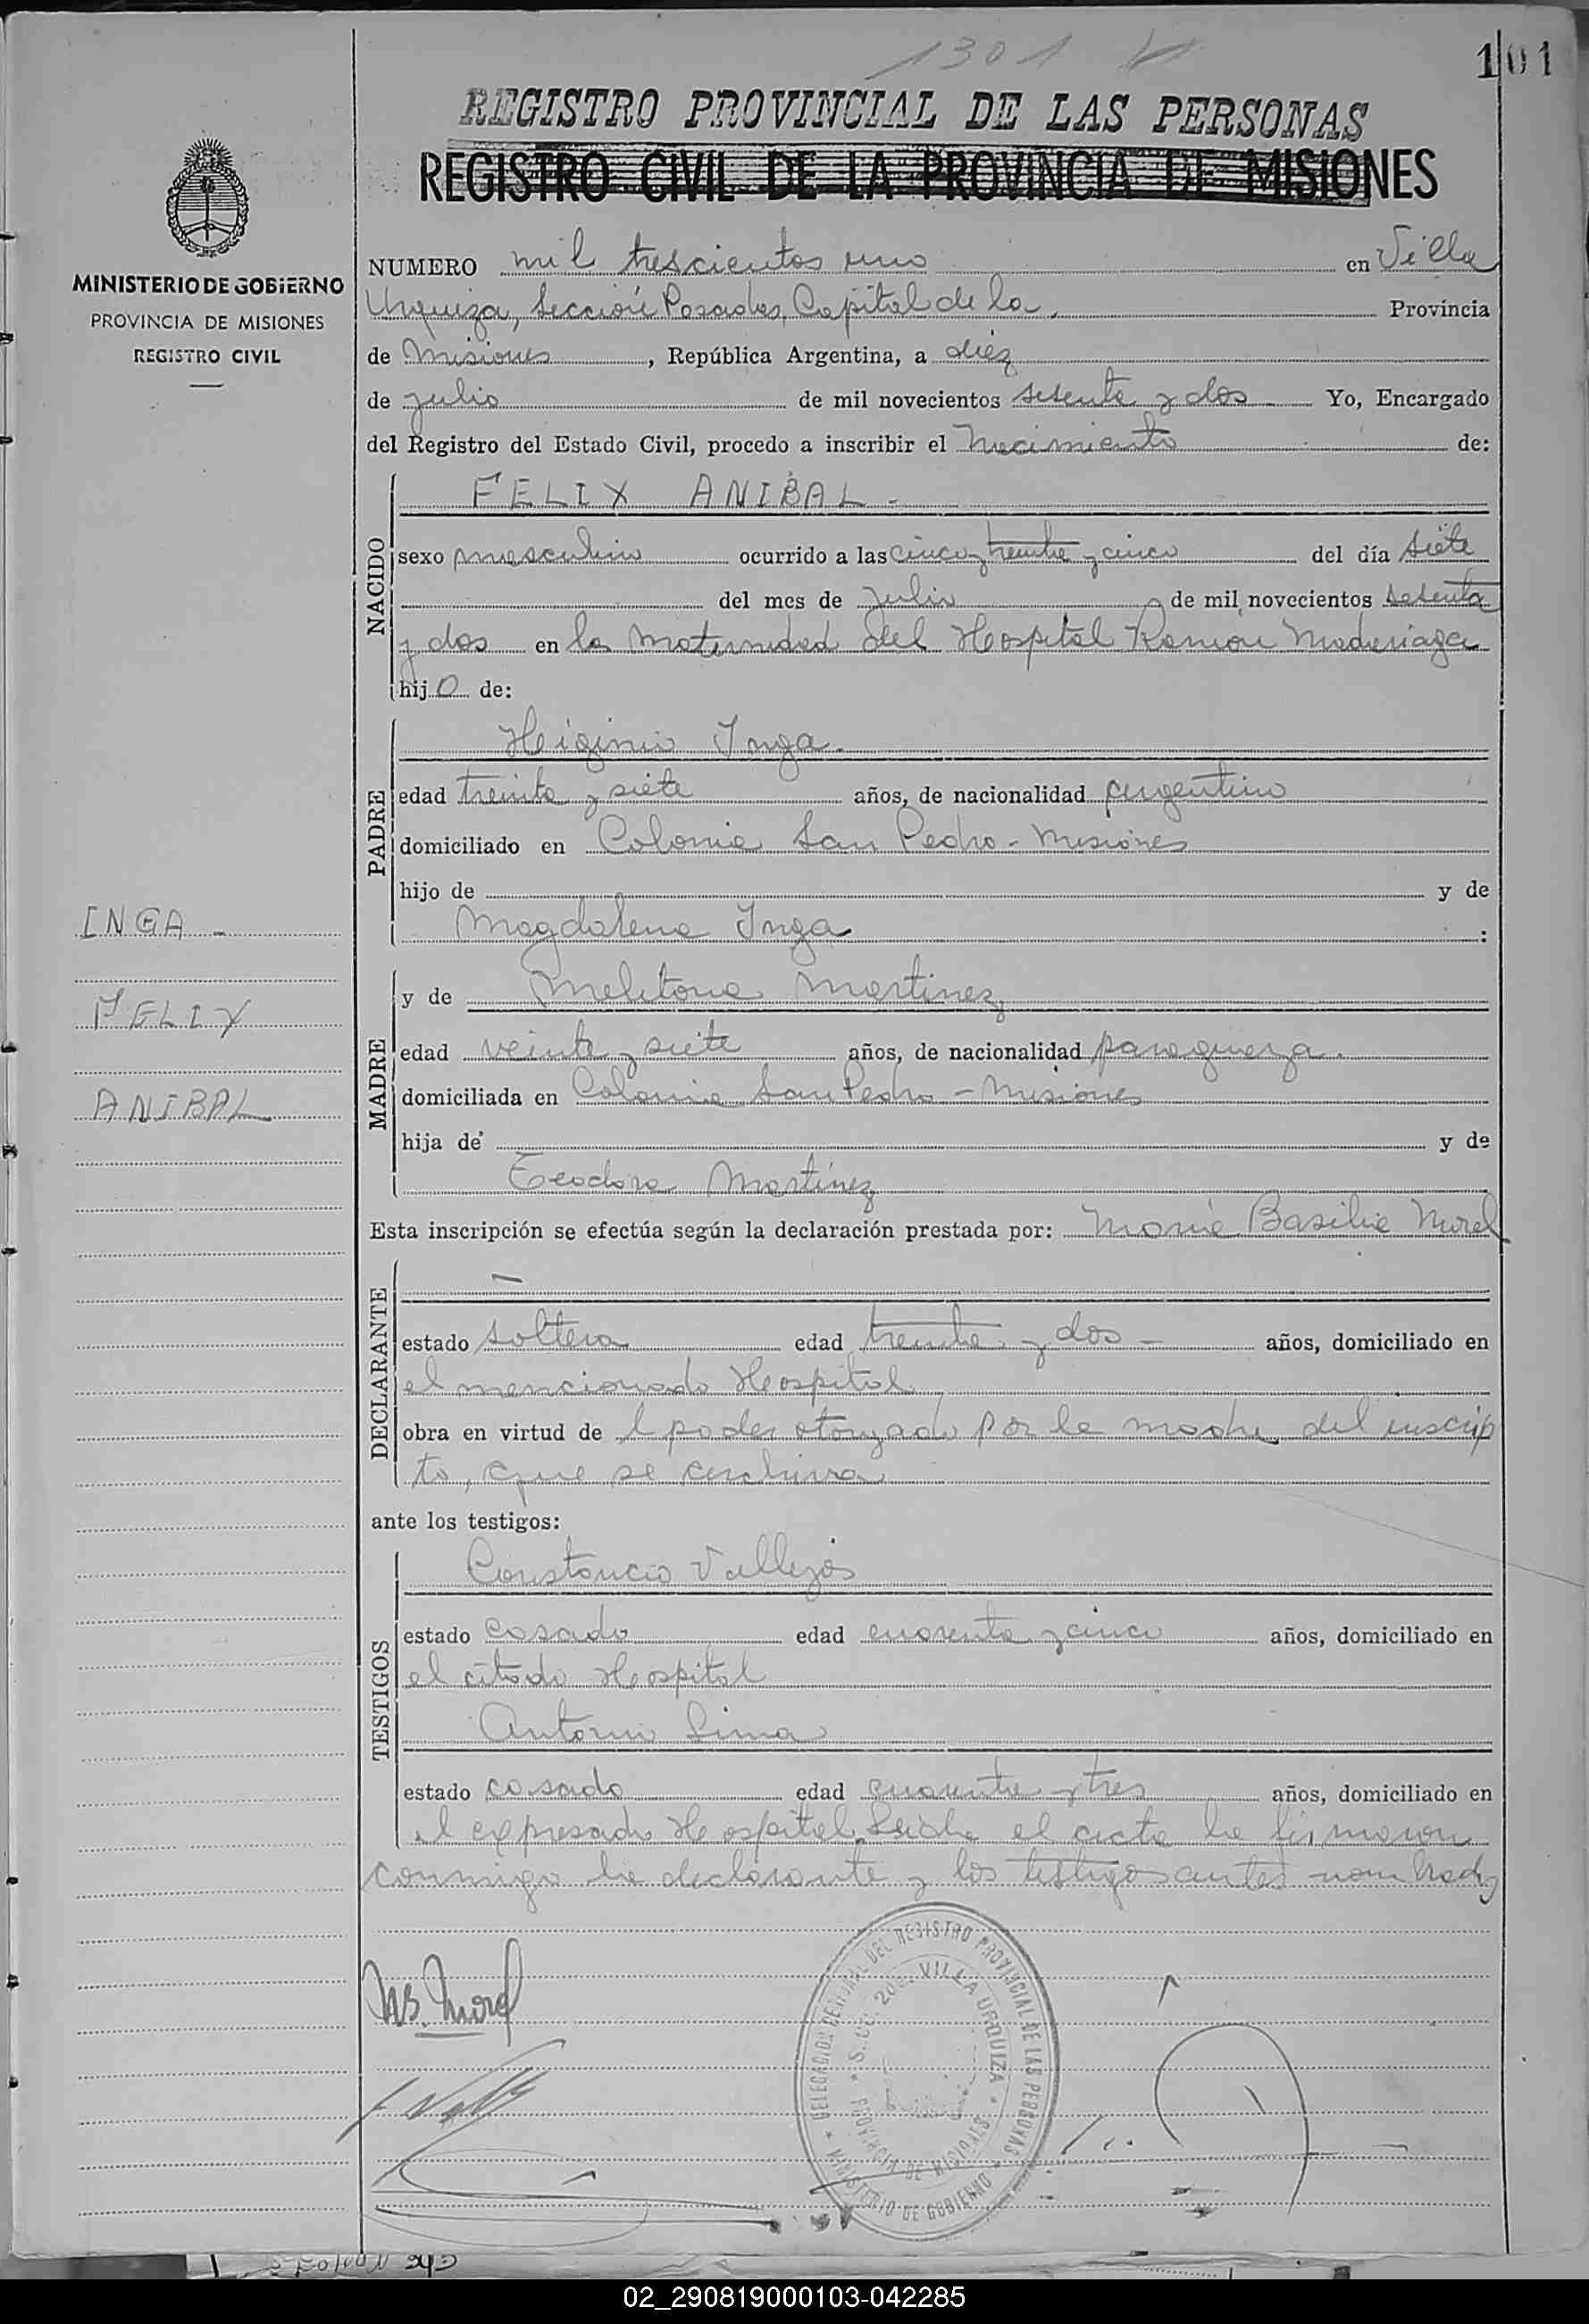 1301
101
REGISTRO PROVINCIAL DE LAS PERSONAS
REGISTRO CIVIL DE LA PROVINCIA DE MISIONES
MINISTERIO DE GOBIERNO
PROVINCIA DE MISIONES
REGISTRO CIVIL
NUMERO mil trescientos uno en Villa
Urquiza, Sección Posadas, Capital de la, Provincia
de Misiones, República Argentina, a diez
de julio de mil novecientos setenta y dos Yo, Encargado
del Registro del Estado Civil, procedo a inscribir el nacimiento de:
NACIDO
FELIX ANIBAL-
sexo masculino ocurrido a las cinco y treinta y cinco del día siete
del mes de julio de mil novecientos setenta
y dos en la Maternidad del Hospital Ramón Madariaga
hijo de:
PADRE
Higinio Inga.
edad treinta y siete años, de nacionalidad argentino
domiciliado en Colonia San Pedro - Misiones
hijo de y de
Magdalena Inga :
INGA -
FELIX
ANIBAL
MADRE
y de Melitona Martinez
edad veinte y siete años, de nacionalidad paraguaya.
domiciliada en Colonia San Pedro - Misiones
hija de y de
Teodora Martínez
Esta inscripción se efectúa según la declaración prestada por: María Basilia Morel
DECLARANTE
estado soltera edad treinta y dos - años, domiciliado en
el mencionado Hospital
obra en virtud de l poder otorgado por la madre del inscrip
to, que se archiva
ante los testigos:
TESTIGOS
Constancio Vallejos
estado casado edad cuarenta y cinco años, domiciliado en
el citado Hospital
Antonio Lima
estado casado edad cuarenta y tres años, domiciliado en
el expresado Hospital. Leída el acta la firmaron
conmigo la declarante y los testigos antes nombrados
MB. Morel
DELEGACION GENERAL DEL REGISTRO PROVINCIAL DE LAS PERSONAS
VILLA URQUIZA
PROVINCIA DE MISIONES
MINISTERIO DE GOBIERNO
02_290819000103-042285